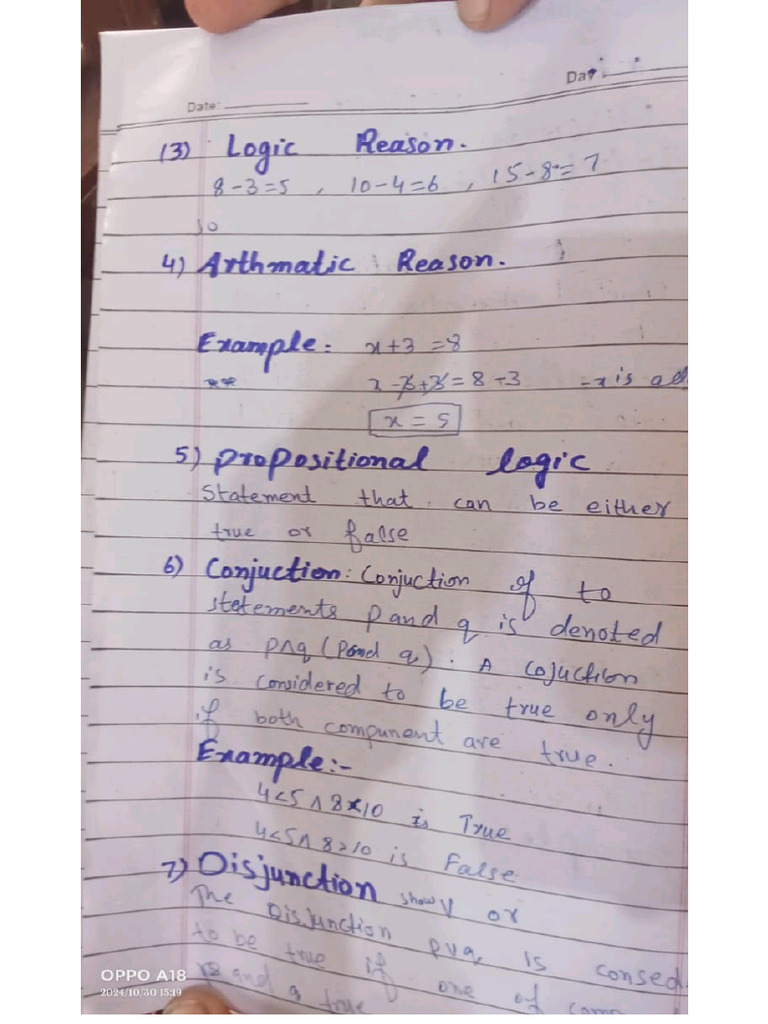 Date:
Day
(3) Logic Reason.
8-3=5 , 10-4=6 , 15-8=7
so
4) Arthmatic Reason.
Example: x+3 =8
x-3+3=8-3 -x is
x = 5
5) Propositional logic
Statement that can be either
true or false
6) Conjuction: Conjuction of to
stetements p and q is denoted
as p∧q (Pand q). A cojuction
is considered to be true only
if both compunent are true.
Example:-
4<5 ∧ 8<10 is True
4<5 ∧ 8>10 is False
7) Disjunction show V or
The Disjunction pvq is consed
to be true if one of com
and q true
OPPO A18
2024/10/30 15:19